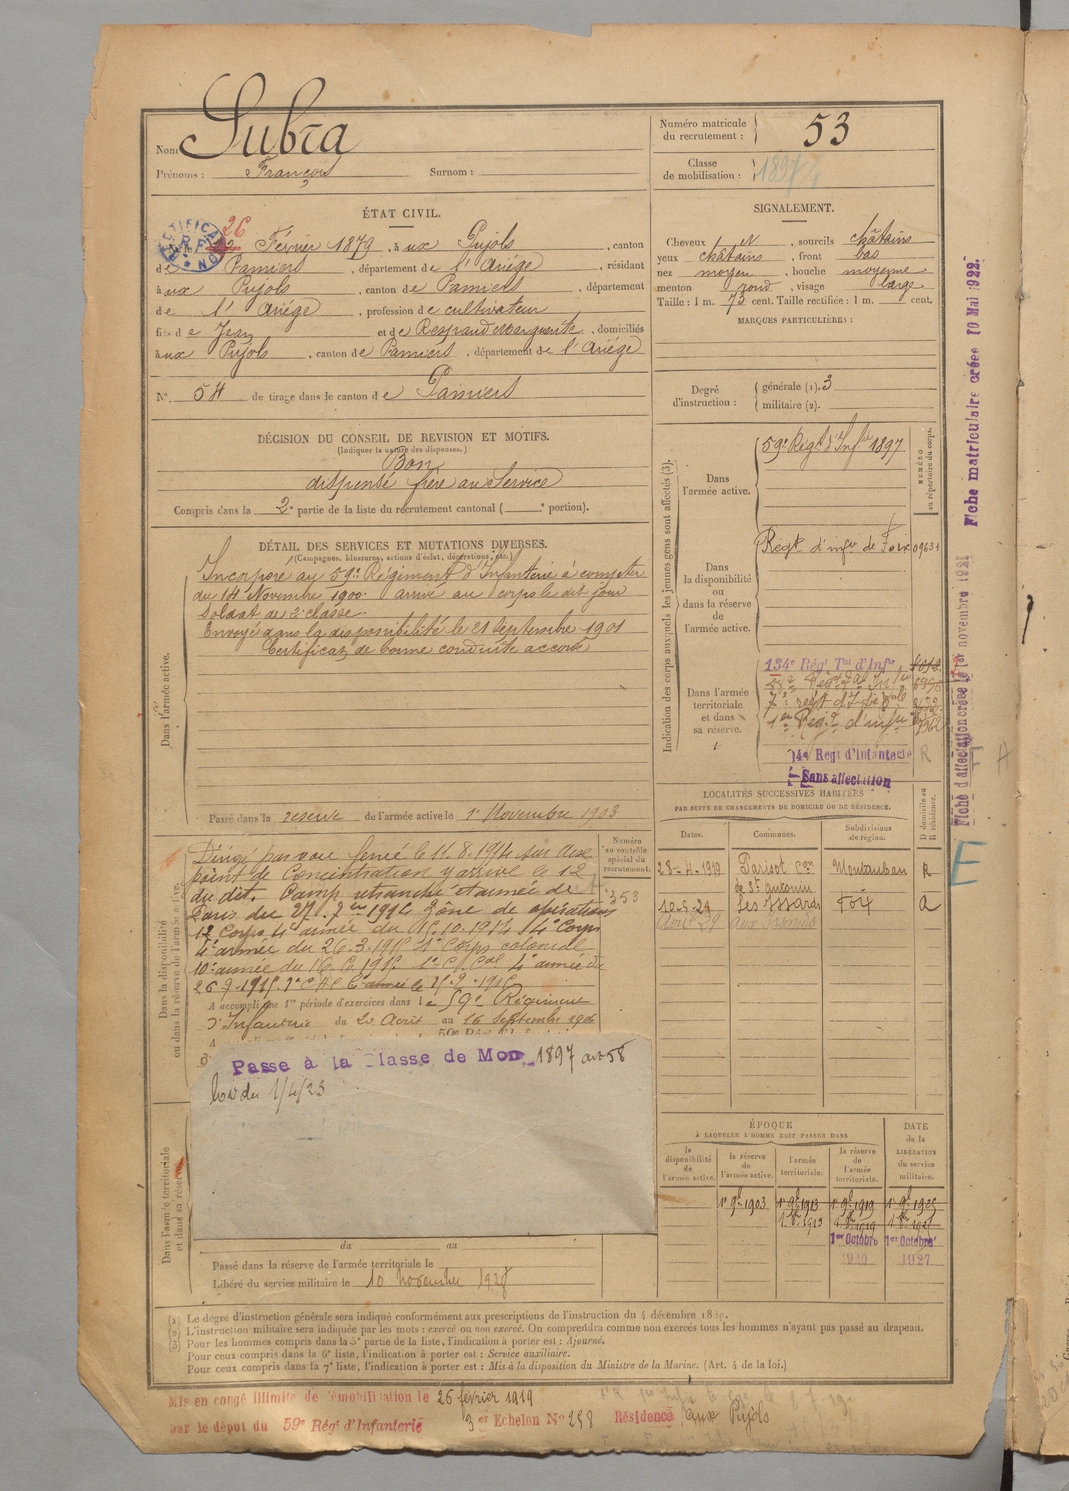 Nom Subra
Prénoms : François Surnom :
Numéro matricule du recrutement : 53
Classe de mobilisation : 1897
ÉTAT CIVIL.
RECTIFICATION
R F
26
Février 1879, à ux Pujols, canton
de Pamiers, département de l'Ariége, résidant
à ux Pujols, canton de Pamiers, département
de l'Ariége, profession de cultivateur
fils de Jean et de Respaud Marguerite, domiciliés
à ux Pujols, canton de Pamiers, département de l'Ariége
N°. 54 de tirage dans le canton de Pamiers
SIGNALEMENT.
Cheveux N, sourcils châtains
yeux châtains, front bas
nez moyen, bouche moyenne
menton rond, visage large
Taille : 1 m. 73 cent. Taille rectifiée : 1 m. cent.
MARQUES PARTICULIÈRES :
Degré d'instruction : générale (1). 3
militaire (2).
DÉCISION DU CONSEIL DE REVISION ET MOTIFS.
(Indiquer la nature des dispenses.)
Bon
dispensé frère au service
Compris dans la 2e partie de la liste du recrutement cantonal ( e portion).
DÉTAIL DES SERVICES ET MUTATIONS DIVERSES.
(Campagnes, blessures, actions d'éclat, décorations, etc.)
Dans l'armée active.
Incorporé au 59e Régiment d'Infanterie à compter
du 14 Novembre 1900. arrivé au corps le dit jour
Soldat de 2e classe.
Envoyé dans la disponibilité le 21 septembre 1901
Certificat de bonne conduite accordé
Passé dans la réserve de l'armée active le 1r Novembre 1903
Indication des corps auxquels les jeunes gens sont affectés (3).
NUMÉRO au répertoire du corps.
Dans l'armée active.
59e Régt d'Infie 1897
Dans la disponibilité ou dans la réserve de l'armée active.
Regt d'infie de Foix 09631
Dans l'armée territoriale et dans sa réserve.
134e Régt Tal d'Infie
14e Regt d'Infanterie R
Sans affectation
Fiche matriculaire créée 10 Mai 1922.
Fiche d'affectation créée le 1er novembre 1921
Dans la disponibilité ou dans la réserve de l'armée active.
Numéro au contrôle spécial du recrutement.
353
Dirigé par voie ferrée le 11.8.1914 sur
point de concentration y arrivé le 12
du dit. Camp retranché et armée de
Paris du 27.7bre 1914 Zône de opérations
12 Corps 4e armée du 15.10.1914 4e Corps
4e armée du 26.3.1915 1r Corps colonial
10e armée du 16.6.1915 1r C. Cal 4e armée du
A accompli une 1re période d'exercices dans le 59e Régiment
d'Infanterie du 20 Aout au 16 Septembre 1906
Passé à la Classe de Mob 1897 art 58
loi du 1/4/23
Dans l'armée territoriale et dans sa réserve.
du au
Passé dans la réserve de l'armée territoriale le
Libéré du service militaire le 10 novembre 1928
LOCALITÉS SUCCESSIVES HABITÉES
PAR SUITE DE CHANGEMENTS DE DOMICILE OU DE RÉSIDENCE.
Dates. Communes. Subdivisions de région. D domicile ou R résidence.
28-4-1919 Parisot Con de St Antonin Montauban R
10-5-29 Les Issards Foix D
Avril 29 aux Issards
ÉPOQUE
À LAQUELLE L'HOMME DOIT PASSER DANS
DATE de la LIBÉRATION du service militaire.
la disponibilité de l'armée active. la réserve de l'armée active. l'armée territoriale. la réserve de l'armée territoriale.
1r 9bre 1903 1r 9bre 1913 1r 9bre 1919 1r 9bre 1925
1er Octobre 1er Octobre
1920 1927
(1) Le degré d'instruction générale sera indiqué conformément aux prescriptions de l'instruction du 4 décembre 1889.
(2) L'instruction militaire sera indiquée par les mots : exercé ou non exercé. On comprendra comme non exercés tous les hommes n'ayant pas passé au drapeau.
(3) Pour les hommes compris dans la 5e partie de la liste, l'indication à porter est : Ajourné.
Pour ceux compris dans la 6e liste, l'indication à porter est : Service auxiliaire.
Pour ceux compris dans la 7e liste, l'indication à porter est : Mis à la disposition du Ministre de la Marine. (Art. 4 de la loi.)
Mis en congé illimité de démobilisation le 26 février 1919
par le dépôt du 59e Régt d'Infanterie 3er Echelon No 258 Résidence aux Pujols